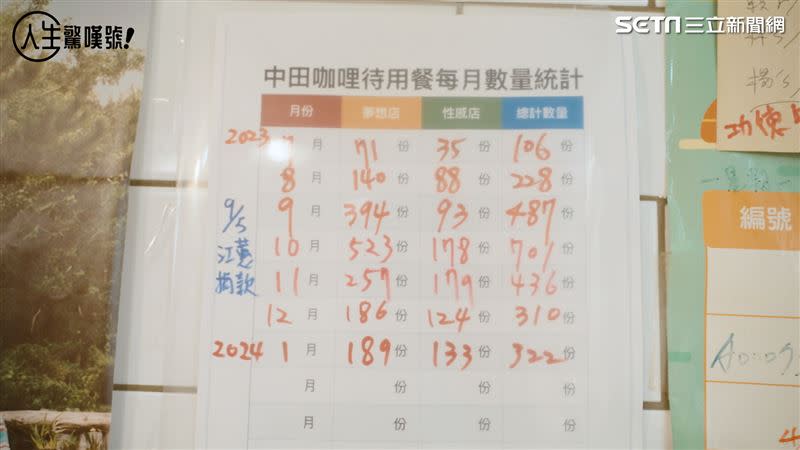 人生驚嘆號!
SETN 三立新聞網
中田咖哩待用餐每月數量統計
月份 夢想店 性感店 總計數量
2023 7月 71份 35份 106份
8月 140份 88份 228份
9/5 9月 394份 93份 487份
江蕙 10月 523份 178份 701份
捐款 11月 257份 179份 436份
12月 186份 124份 310份
2024 1月 189份 133份 322份
月 份 份 份
月 份 份 份
編號